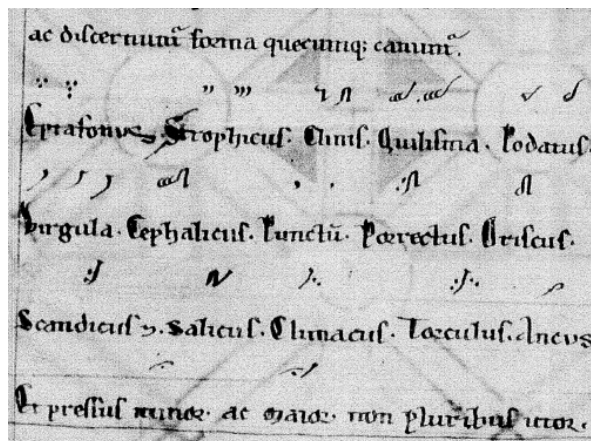 ac discernunt᷑ forma quecumq; canunt᷑.
Eptafonus, Strophicus. Clinis. Quilisma. Podatus.
Virgula. Cephalicus. Punctū. Porrectus. Oriscus.
Scandicus ⁊. Salicus. Climacus. Torculus. Ancus
Et pressus minor. ac maior. non pluribus utor.